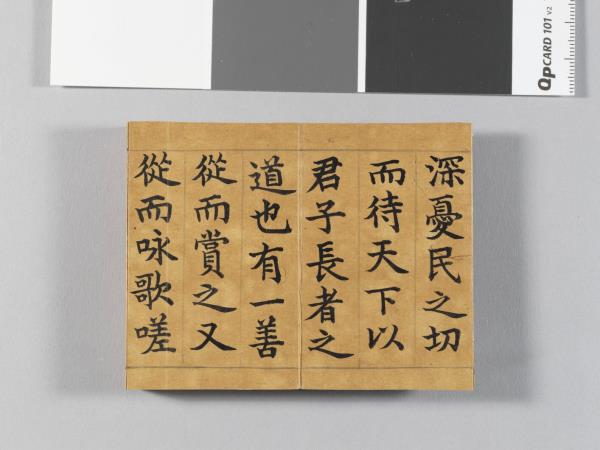 深憂民之切
而待天下以
君子長者之
道也有一善
從而賞之又
從而咏歌嗟
QpCARD 101 v2